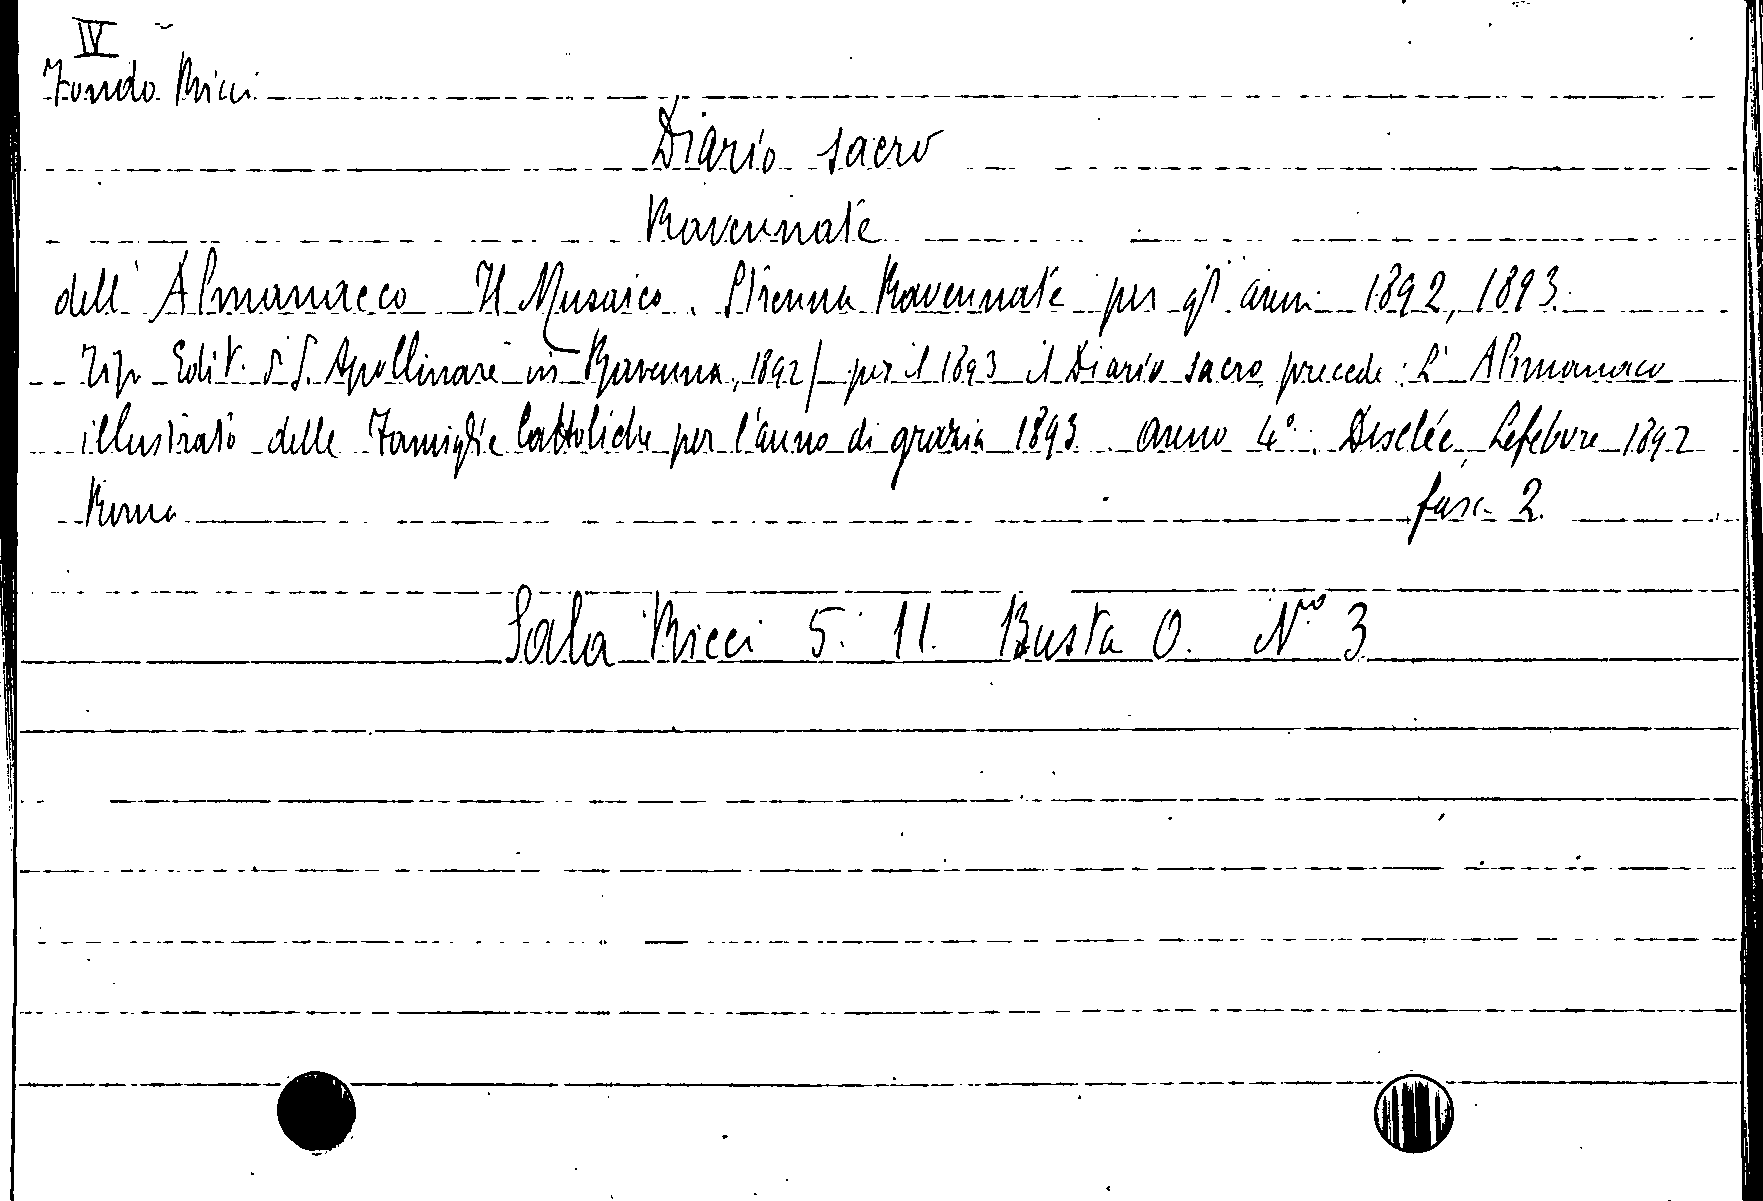 IV
Fondo Ricci
Diario sacro
Ravennate
dell'Almanacco Il Musaico. Strenna Ravennate per gli anni 1892, 1893.
Tip. Edit. di S. Apollinare in Ravenna, 1892/ per il 1893 il Diario sacro precede: L'Almanaco
illustrato delle Famiglie Cattoliche per l'anno di grazia 1893. anno 4°. Desclée, Lefebvre 1892
Roma fasc. 2.
Sala Ricci 5. 11. Busta O. Nro 3